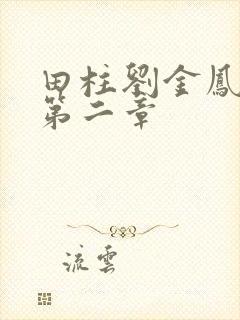 田柱劉金鳳
第二章
流雲